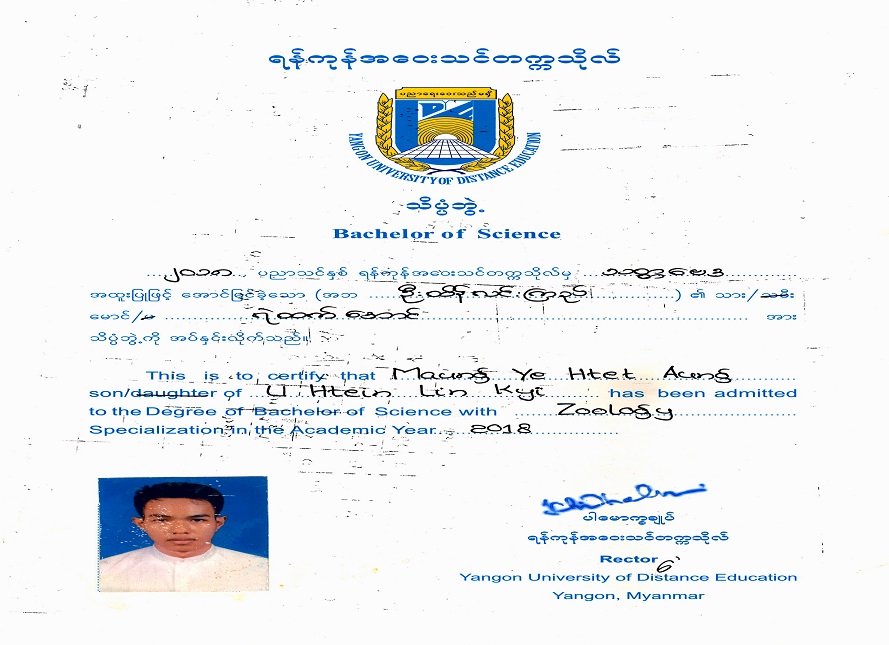 ရန်ကုန်အဝေးသင်တက္ကသိုလ်
ပညာရေးဝေးသည်မရှိ
DE
YANGON UNIVERSITY OF DISTANCE EDUCATION
သိပ္ပံဘွဲ့
Bachelor of Science
၂၀၁၈ ပညာသင်နှစ် ရန်ကုန်အဝေးသင်တက္ကသိုလ်မှ သတ္တဗေဒ
အထူးပြုဖြင့် အောင်မြင်ခဲ့သော (အဘ ဦးထိန်လင်းကြည် ) ၏ သား/သမီး
မောင်/မ ရဲထက်အောင် အား
သိပ္ပံဘွဲ့ကို အပ်နှင်းလိုက်သည်။
This is to certify that Maung Ye Htet Aung
son/daughter of U Htein Lin Kyi has been admitted
to the Degree of Bachelor of Science with Zoology
Specialization in the Academic Year 2018
ပါမောက္ခချုပ်
ရန်ကုန်အဝေးသင်တက္ကသိုလ်
Rector
Yangon University of Distance Education
Yangon, Myanmar